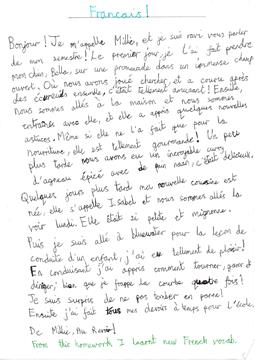 Français!
Bonjour! Je m'appelle Millie, et je suis ravi vous parler
de mon semestre! Le premier jour, je l'ai fait prendre
mon chien, Bella, sur une promenade dans un immense champ
ouvert. Où nous avons joué chercher, et a couru après
des écureuils ensemble, c'était tellement amusant! Ensuite,
nous sommes allés à la maison et nous sommes
entraînés avec elle, et elle a appris quelques nouvelles
astuces. Même si elle ne l'a fait que pour la
nourriture, elle est tellement gourmande! Un peu
plus tard nous avons eu un incroyable curry
d'agneau épicé avec de pain naan, c'était délicieux.
Quelques jours plus tard ma nouvelle cousine est
née, elle s'appelle Isabel et nous sommes allés la
voir lundi. Elle était si petite et mignonne.
Puis je suis allé à bluewater pour la leçon de
conduite d'un enfant, j'ai eu tellement de plaisir!
En conduisant j'ai appris comment tourner, garer et
diriger, bien que je frappe la courbe quatre fois!
Je suis surpris de ne pas tomber en panne!
Ensuite j'ai fait tous mes devoirs à temps pour l'école.
De Millie, Au Revoir!
From this homework I learnt new French vocab.